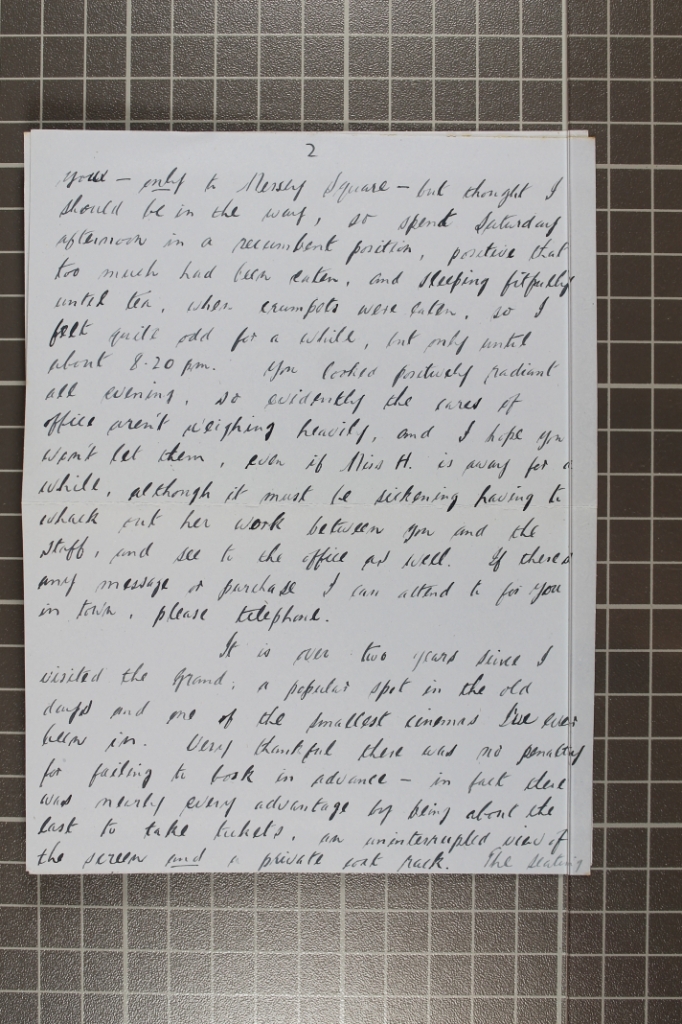 2
yours – only to Mersey Square – but thought I
should be in the way, so spent Saturday
afternoon in a recumbent position, positive that
too much had been eaten, and sleeping fitfully
until tea, when crumpets were eaten, so I
felt quite odd for a while, but only until
about 8-20 pm. You looked positively radiant
all evening, so evidently the cares of
office aren't weighing heavily, and I hope you
won't let them, even if Miss H. is away for a
while, although it must be sickening having to
whack out her work between you and the
staff, and see to the office as well. If there's
any message or purchase I can attend to for you
in town, please telephone.
It is over two years since I
visited the Grand, a popular spot in the old
days and one of the smallest cinemas I've ever
been in. Very thankful there was no penalty
for failing to book in advance – in fact there
was nearly every advantage by being about the
last to take tickets, an uninterrupted view of
the screen and a private coat rack. The seating